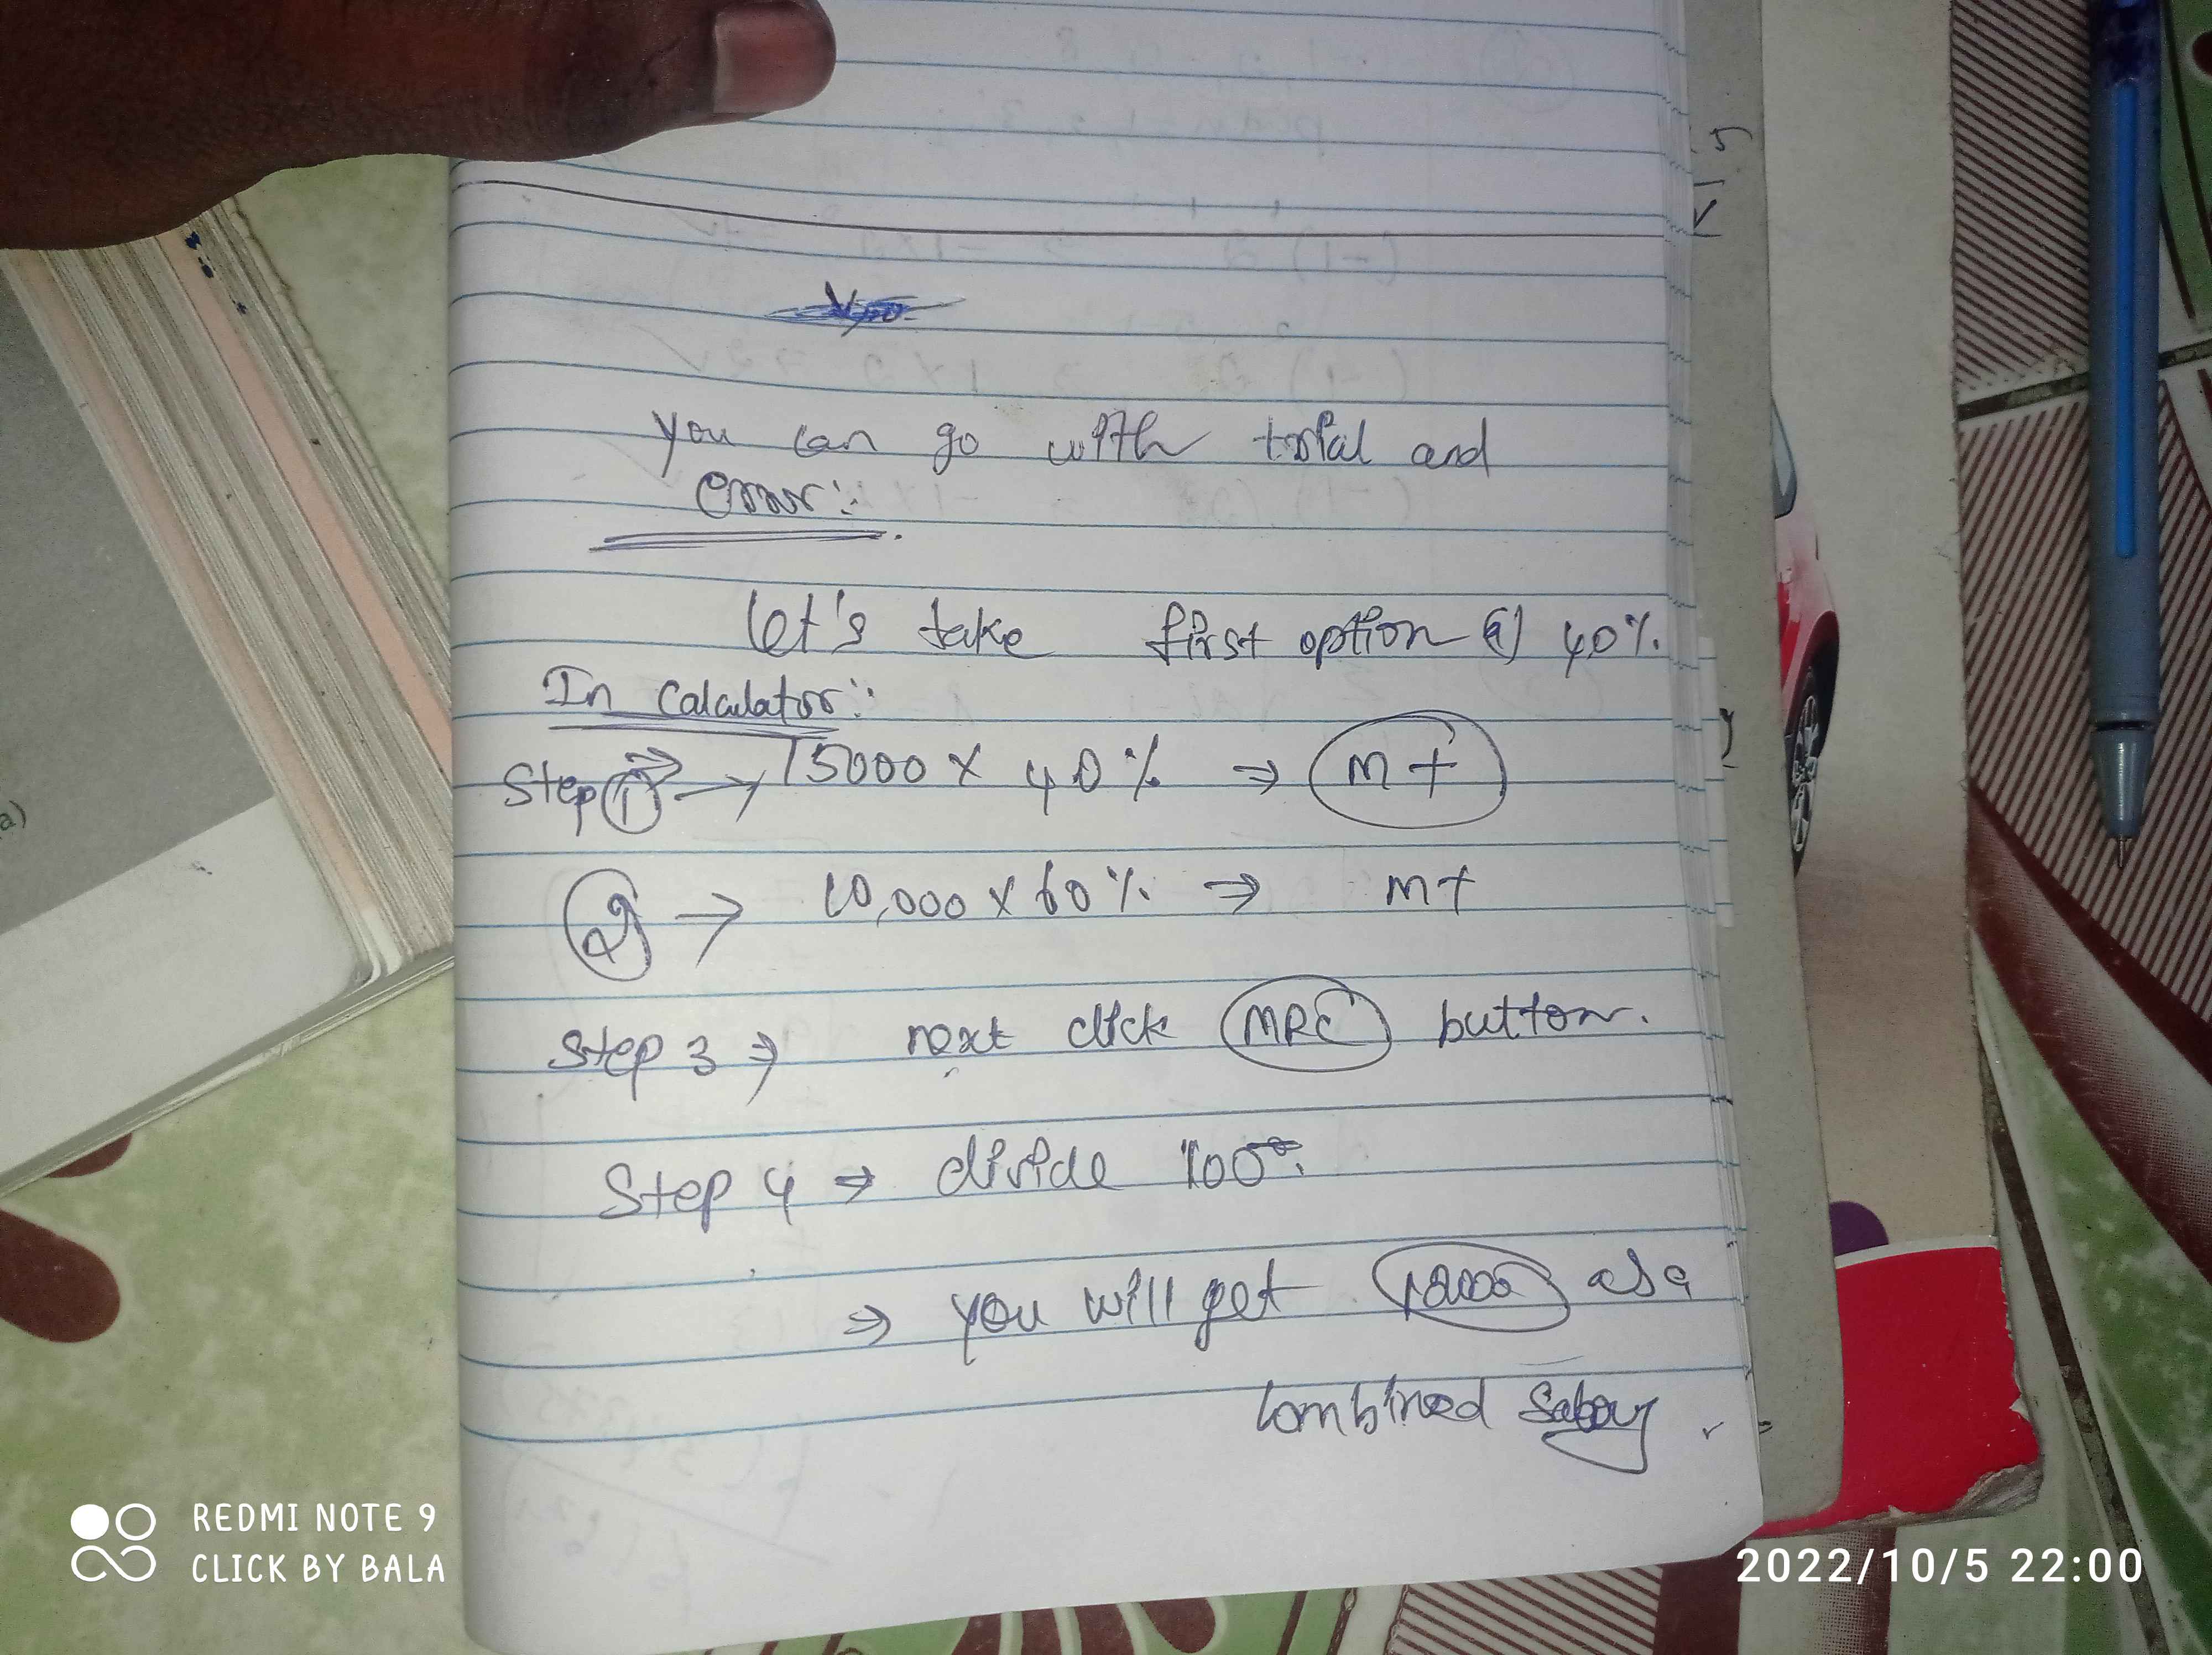 you can go with trial and
error:-
let's take first option a) 40%.
In calculator:-
Step ① → 15000 x 40% ⇒ M+
② → 10,000 x 60% ⇒ M+
Step 3 ⇒ next click MRC button.
Step 4 ⇒ divide 100
⇒ you will get 12000 as a
combined salary
REDMI NOTE 9
CLICK BY BALA
2022/10/5 22:00